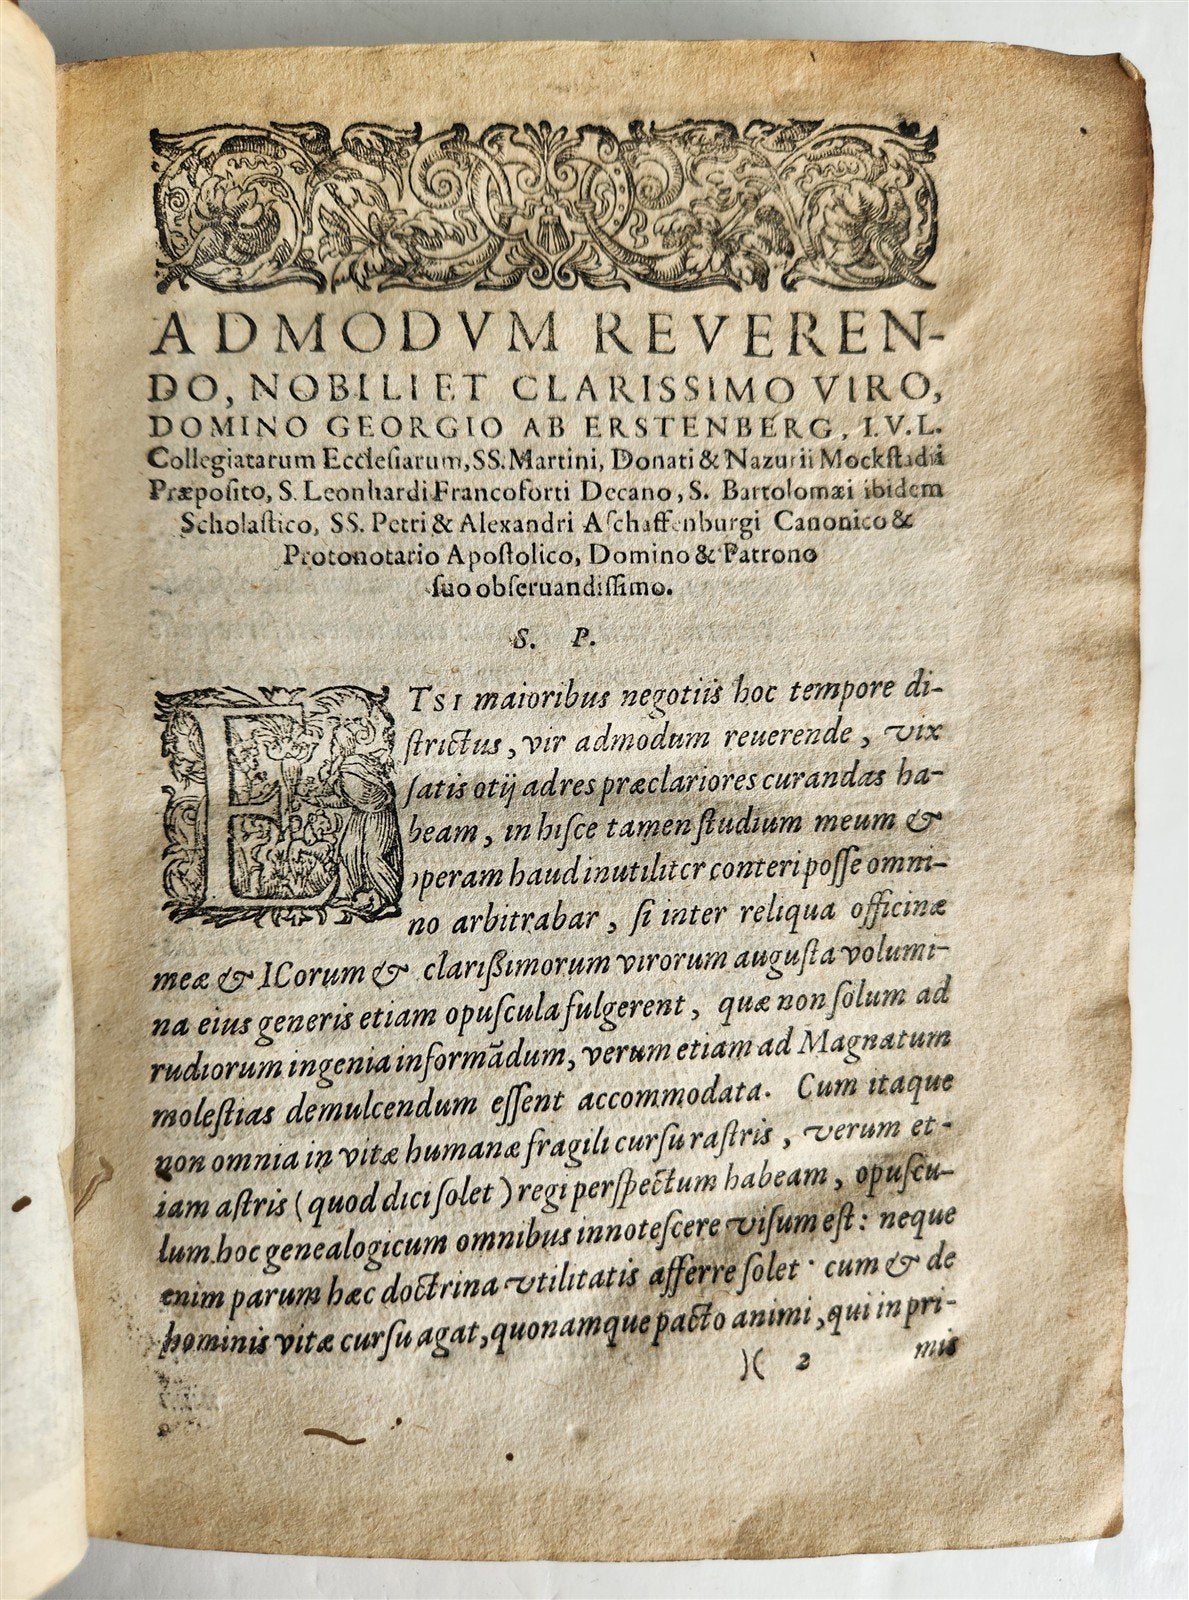 ADMODVM REVEREN-
DO, NOBILI ET CLARISSIMO VIRO,
DOMINO GEORGIO AB ERSTENBERG, I.V.L.
Collegiatarum Ecclesiarum, SS. Martini, Donati & Nazarii Mockstadii
Præposito, S. Leonhardi Francoforti Decano, S. Bartolomæi ibidem
Scholaſtico, SS. Petri & Alexandri Aſchaffenburgi Canonico &
Protonotario Apoſtolico, Domino & Patrono
ſuo obſeruandiſſimo.
S. P.
ETSI maioribus negotiis hoc tempore di-
ſtrictus, vir admodum reuerende, vix
ſatis otij ad res præclariores curandas ha-
beam, in hiſce tamen ſtudium meum &
operam haud inutiliter conteri poſſe omni-
no arbitrabar, ſi inter reliqua officinæ
meæ & ICorum & clarißimorum virorum auguſta volumi-
na eius generis etiam opuſcula fulgerent, quæ non ſolum ad
rudiorum ingenia informãdum, verum etiam ad Magnatum
moleſtias demulcendum eſſent accommodata. Cum itaque
non omnia in vitæ humanæ fragili curſu raſtris, verum et-
iam aſtris (quod dici ſolet) regi perſpectum habeam, opuſcu-
lum hoc genealogicum omnibus innoteſcere viſum eſt: neque
enim parum hæc doctrina vtilitatis afferre ſolet · cum & de
hominis vitæ curſu agat, quonamque pacto animi, qui in pri-
)( 2 mis